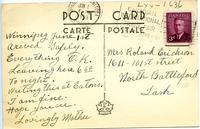 Lxx-1636
POST CARD
CARTE POSTALE
Winnipeg June 1st
Arrived Safely.
Everything O.K.
Leaving here 6:25
Tonight.
Writing this at Eatons.
I am fine.
Hope you are.
Lovingly Mother
Mrs Roland Erickson
1611-101st street
North Battleford
Sask